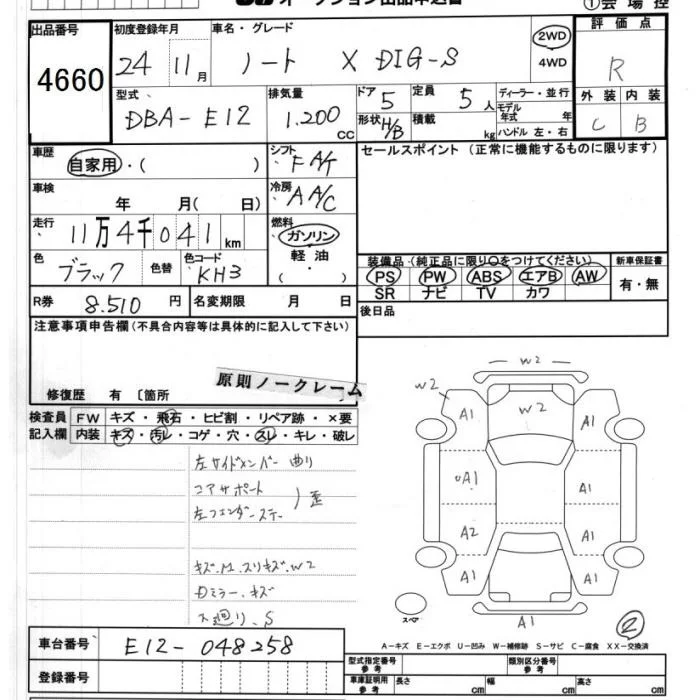 オークション出品申込書
①会場控
出品番号 初度登録年月 車名・グレード 評価点
4660 24 11月 ノート X DIG-S 2WD 4WD R
型式 排気量 ドア 定員 ディーラー・並行 外装 内装
DBA-E12 1.200 cc 5 5人 モデル年式 年 C B
形状 H/B 積載 kg ハンドル 左・右
車歴 シフト セールスポイント (正常に機能するものに限ります)
自家用・( ) FA/T
車検 年 月( 日) 冷房 AA/C
走行 11万4千041km 燃料 ガソリン 軽油 ・( )
装備品(純正品に限り○をつけてください) 新車保証書
色 ブラック 色替 色コード KH3
PS PW ABS エアB AW 有・無
SR ナビ TV カワ
R券 8.510円 名変期限 月 日 後日品
注意事項申告欄(不具合内容等は具体的に記入して下さい)
原則ノークレーム
修復歴 有〔箇所 〕
検査員 FW キズ・飛石・ヒビ割・リペア跡・×要
記入欄 内装 キズ・汚レ・コゲ・穴・スレ・キレ・破レ
左サイドメンバー曲り
コアサポート
左フェンダーステー 歪
キズ.M.スリキズ.W2
Dミラー.キズ
S
W2
W2
W2
A1 A1
A1 A1
A2 A1
A1 A1
A1
スペア
2
A-キズ E-エクボ U-凹み W-補修跡 S-サビ C-腐食 XX-交換済
車台番号 E12-048258
型式指定番号 参考 類別区分番号 参考
登録番号
車庫証明用 参考 長さ cm 幅 cm 高さ cm